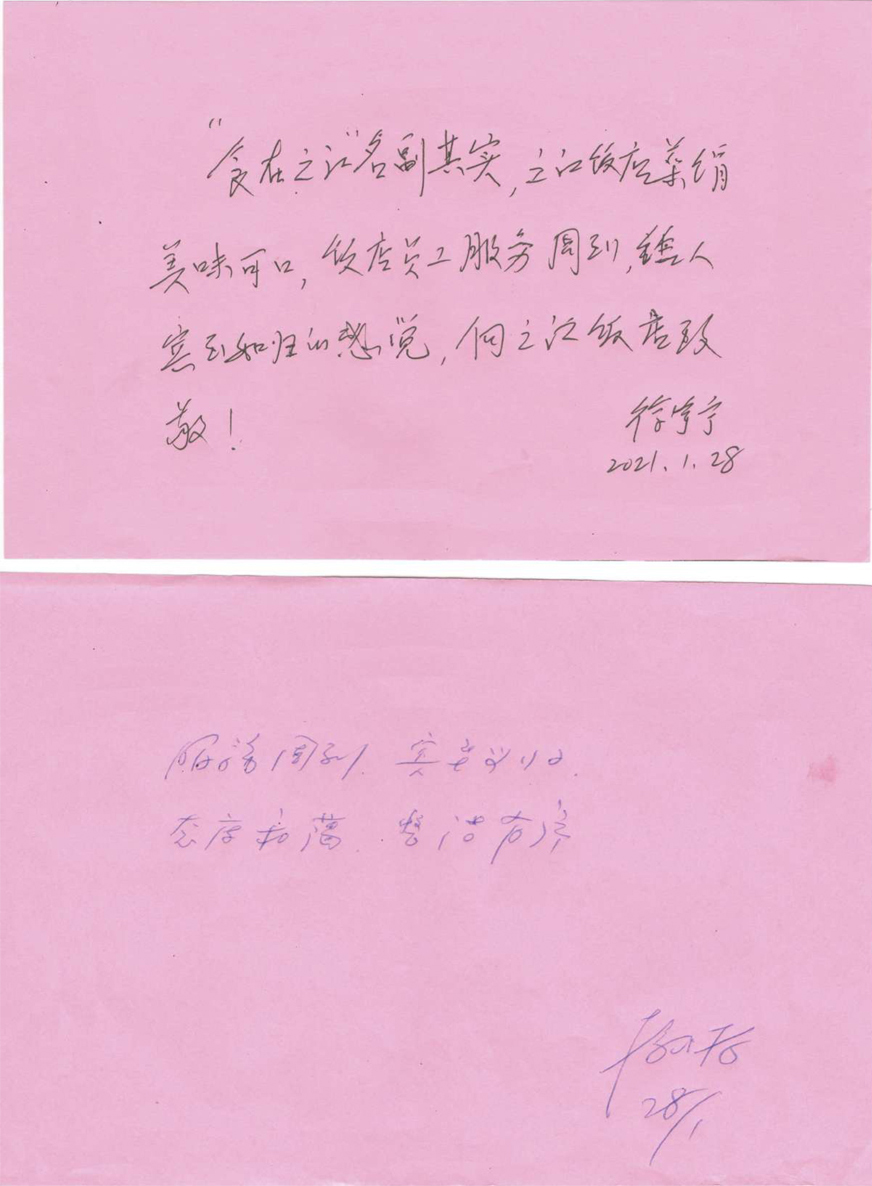 “食在之江”名副其实，之江饭店菜
美味可口，饭店员工服务周到，人
宾至如归的感觉，向之江饭店致
敬！
徐宁
2021.1.28
服务周到．宾至如归．
态度和蔼．整洁有序
28/1